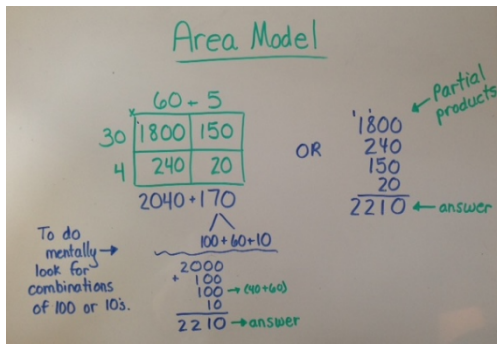 Area Model
x 60 - 5
30 1800 150
4 240 20
2040 + 170
100 + 60 + 10
To do
mentally →
look for
combinations
of 100 or 10's.
2000
+ 100
100 → (40+60)
10
2210 → answer
OR
Partial
products
1800
240
150
20
2210 ← answer